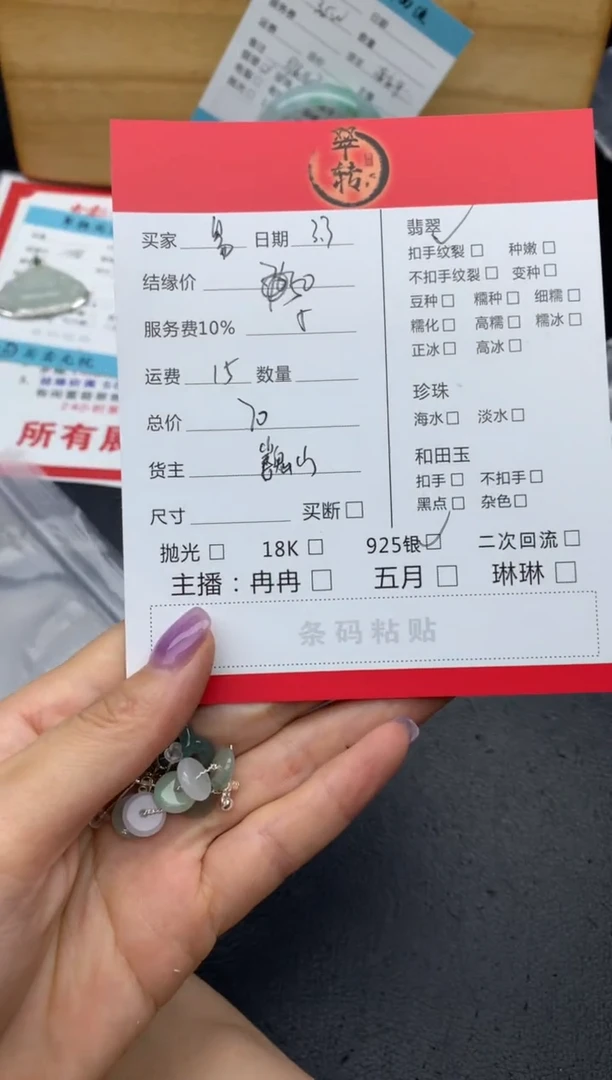 翠
轱
买家 易 日期 3.3
结缘价 50
服务费10% 5
运费 15 数量
总价 70
货主 巍山
尺寸 买断
翡翠
扣手纹裂 种嫩
不扣手纹裂 变种
豆种 糯种 细糯
糯化 高糯 糯冰
正冰 高冰
珍珠
海水 淡水
和田玉
扣手 不扣手
黑点 杂色
抛光 18K 925银 二次回流
主播：冉冉 五月 琳琳
条码粘贴
所有展